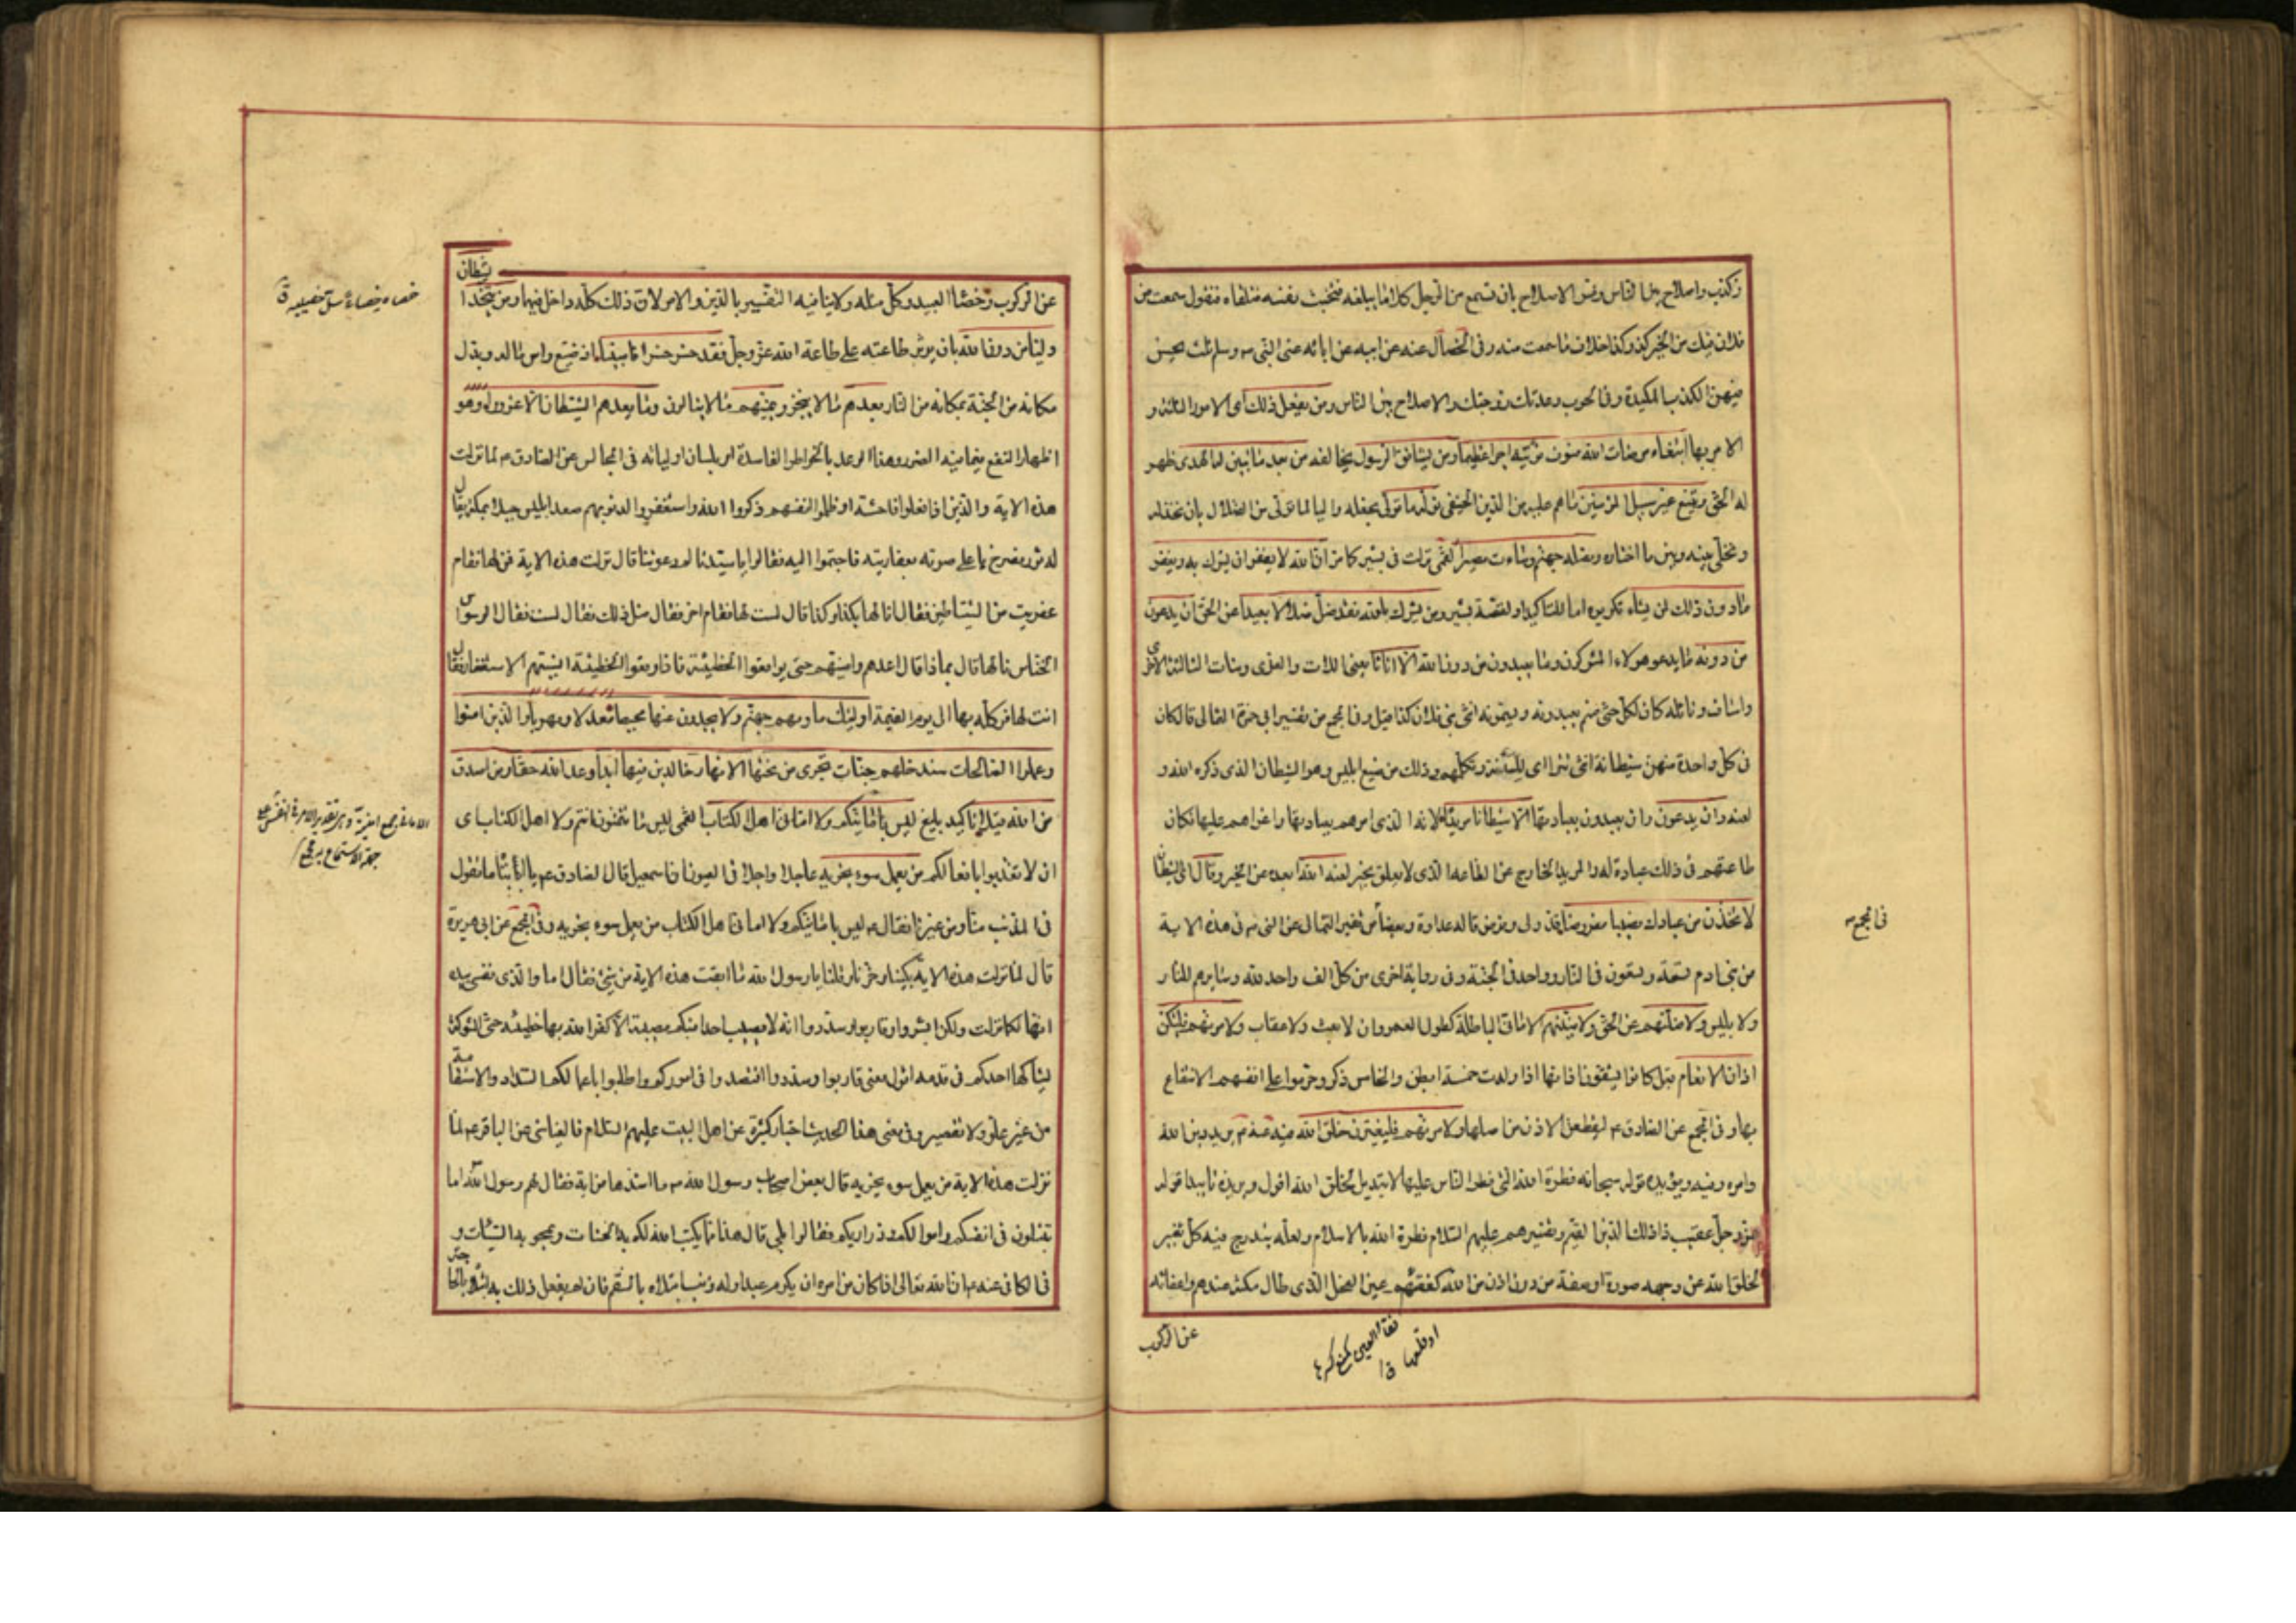 وكذب واصلاح بين الناس وفسر الاصلاح بان تسمع من الرجل كلاما يبلغه فتخبث نفسه فتلقاه فتقول سمعت من
فلان فيك من الخير كذا وكذا خلاف ما سمعت منه وفى الخصال عنه عن ابيه عن ابائه عن النبى ص وسلم ثلث يحسن
فيهن الكذب المكيدة فى الحرب وعدتك زوجتك والاصلاح بين الناس ومن يفعل ذلك اى الامور الثلثة و
الامر بها ابتغاء مرضات الله فسوف نؤتيه اجرا عظيما ومن يشاقق الرسول يخالفه من بعد ما تبين له الهدى ظهر
له الحق ويتبع غير سبيل المؤمنين ما هم عليه من الدين الحنيفى نوله ما تولى نجعله واليا لما تولى من الضلال بان نخذله
ونخلى بينه وبين ما اختاره ونصله جهنم وساءت مصيرا القمى نزلت فى بشير كما مر ان الله لا يغفر ان يشرك به ويغفر
ما دون ذلك لمن يشاء تكريره اما للتاكيد او لقصة بشير ومن يشرك بالله فقد ضل ضلالا بعيدا عن الحق ان يدعون
من دونه ما يدعو هولاء المشركون وما يعبدون من دون الله الا اناثا يعنى اللات والعزى ومنات الثالثة الاخرى
واساف ونائلة كان لكل حى صنم يعبدونه ويسمونه انثى بنى فلان كذا قيل وفى المجمع من تفسير ابى حمزة الثمالى قال كان
فى كل واحدة منهن شيطانة انثى تتراى للسدنة وتكلمهم وذلك من صنيع ابليس وهو الشيطان الذى ذكره الله و
لعنه وان يدعون وان يعبدون بعبادتها الا شيطانا مريدا لانه الذى امرهم بعبادتها واغراهم عليها فكان
طاعتهم فى ذلك عبادة له والمريد الخارج عن الطاعة الذى لا يعلق بخير لعنه الله ابعده عن الخير وقال اى الشيطان
لاتخذن من عبادك نصيبا مفروضا قدر لى وفرض قاله عداوة وبغضا من تفسير الثمالى عن النبى ص فى هذه الاية
من بنى ادم تسعة وتسعون فى النار وواحد فى الجنة وفى رواية اخرى من كل الف واحد لله وسايرهم للنار
ولابليس ولاضلنهم عن الحق ولامنينهم الامانى الباطلة كطول العمر وان لا بعث ولا عقاب ولامرنهم فليبتكن
اذان الانعام قيل كانوا يشقون اذانها اذا ولدت خمسة ابطن والخامس ذكر وحرموا على انفسهم الانتفاع
بها وفى المجمع عن الصادق ع ليقطعن الاذن من اصلها ولامرنهم فليغيرن خلق الله فيه عنه ع يريد دين الله
وامره ونهيه ويؤيده قوله سبحانه فطرة الله التى فطر الناس عليها لا تبديل لخلق الله اقول ويزيده تاييدا قوله
عز وجل عقيب ذلك ذلك الدين القيم وتفسيرهم عليهم السلام فطرة الله بالاسلام ولعله يندرج فيه كل تغيير
لخلق الله عن وجهه صورة او صفة من دون اذن من الله كفقئهم عين الفحل الذى طال مكثه عندهم واعفائه
عن الركوب
فى المجمع ص
شيطان
عن الركوب وخصاء العبيد وكل مثلة ولا ينافيه التفسير بالدين والامر لان ذلك كله داخل فيهما ومن يتخذ ا
وليا من دون الله بان يؤثر طاعته على طاعة الله عز وجل فقد خسر خسرانا مبينا اذ ضيع راس ماله وبدل
مكانه من الجنة بمكانه من النار يعدهم ما لا ينجز ويمنيهم ما لا ينالون وما يعدهم الشيطان الا غرورا وهو
اظهار النفع فيما فيه الضرر وهذا الوعد بالخواطر الفاسدة او بلسان اوليائه فى المجالس عن الصادق ع لما نزلت
هذه الاية والذين اذا فعلوا فاحشة او ظلموا انفسهم ذكروا الله واستغفروا لذنوبهم صعد ابليس جبلا بمكة يقال
له ثور فصرخ باعلى صوته بعفاريته فاجتمعوا اليه فقالوا يا سيدنا لم دعوتنا قال نزلت هذه الاية فمن لها فقام
عفريت من الشياطين فقال انا لها بكذا وكذا قال لست لها فقام اخر فقال مثل ذلك فقال لست لها فقال الوسواس
الخناس انا لها قال بماذا قال اعدهم وامنيهم حتى يواقعوا الخطيئة فاذا وقعوا الخطيئة انسيتهم الاستغفار فقال
انت لها فوكله بها الى يوم القيمة اولئك ماويهم جهنم ولا يجدون عنها محيصا معدلا ومهربا والذين امنوا
وعملوا الصالحات سندخلهم جنات تجرى من تحتها الانهار خالدين فيها ابدا وعد الله حقا ومن اصدق
من الله قيلا تاكيد بليغ ليس بامانيكم ولا امانى اهل الكتاب القمى ليس ما تتمنون انتم ولا اهل الكتاب اى
ان لا تعذبوا بافعالكم من يعمل سوءا يجز به عاجلا او اجلا فى العيون ان اسمعيل قال للصادق ع يا ابتاه ما تقول
فى المذنب منا ومن غيرنا فقال ع ليس بامانيكم ولا امانى اهل الكتاب من يعمل سوء يجز به وفى المجمع عن ابى هريرة
قال لما نزلت هذه الاية بكينا وحزنا وقلنا يا رسول الله ما ابقت هذه الاية من شىء فقال اما والذى نفسى بيده
انها لكما نزلت ولكن ابشروا وقاربوا وسددوا انه لا يصيب احدا منكم مصيبة الا كفر الله بها خطيئة حتى الشوكة
يشاكها احدكم فى قدمه اقول معنى قاربوا وسددوا اقتصدوا فى اموركم واطلبوا باعمالكم السداد والاستقامة
من غير غلو ولا تقصير وفى معنى هذا الحديث اخبار كثيرة عن اهل البيت عليهم السلام فالعياشى عن الباقر ع لما
نزلت هذه الاية من يعمل سوء يجز به قال بعض اصحاب رسول الله ص ما اشدها من اية فقال لهم رسول الله اما
تبتلون فى انفسكم واموالكم وذراريكم فقالوا بلى قال هذا مما يكتب الله لكم به الحسنات ويمحو به السيئات و
فى الكافى عنه ع ان الله تعالى اذا كان من امره ان يكرم عبدا وله ذنب ابتلاه بالسقم فان لم يفعل ذلك به ابتلاه بالحاجة
خصاه خصاء سل خصييه ق